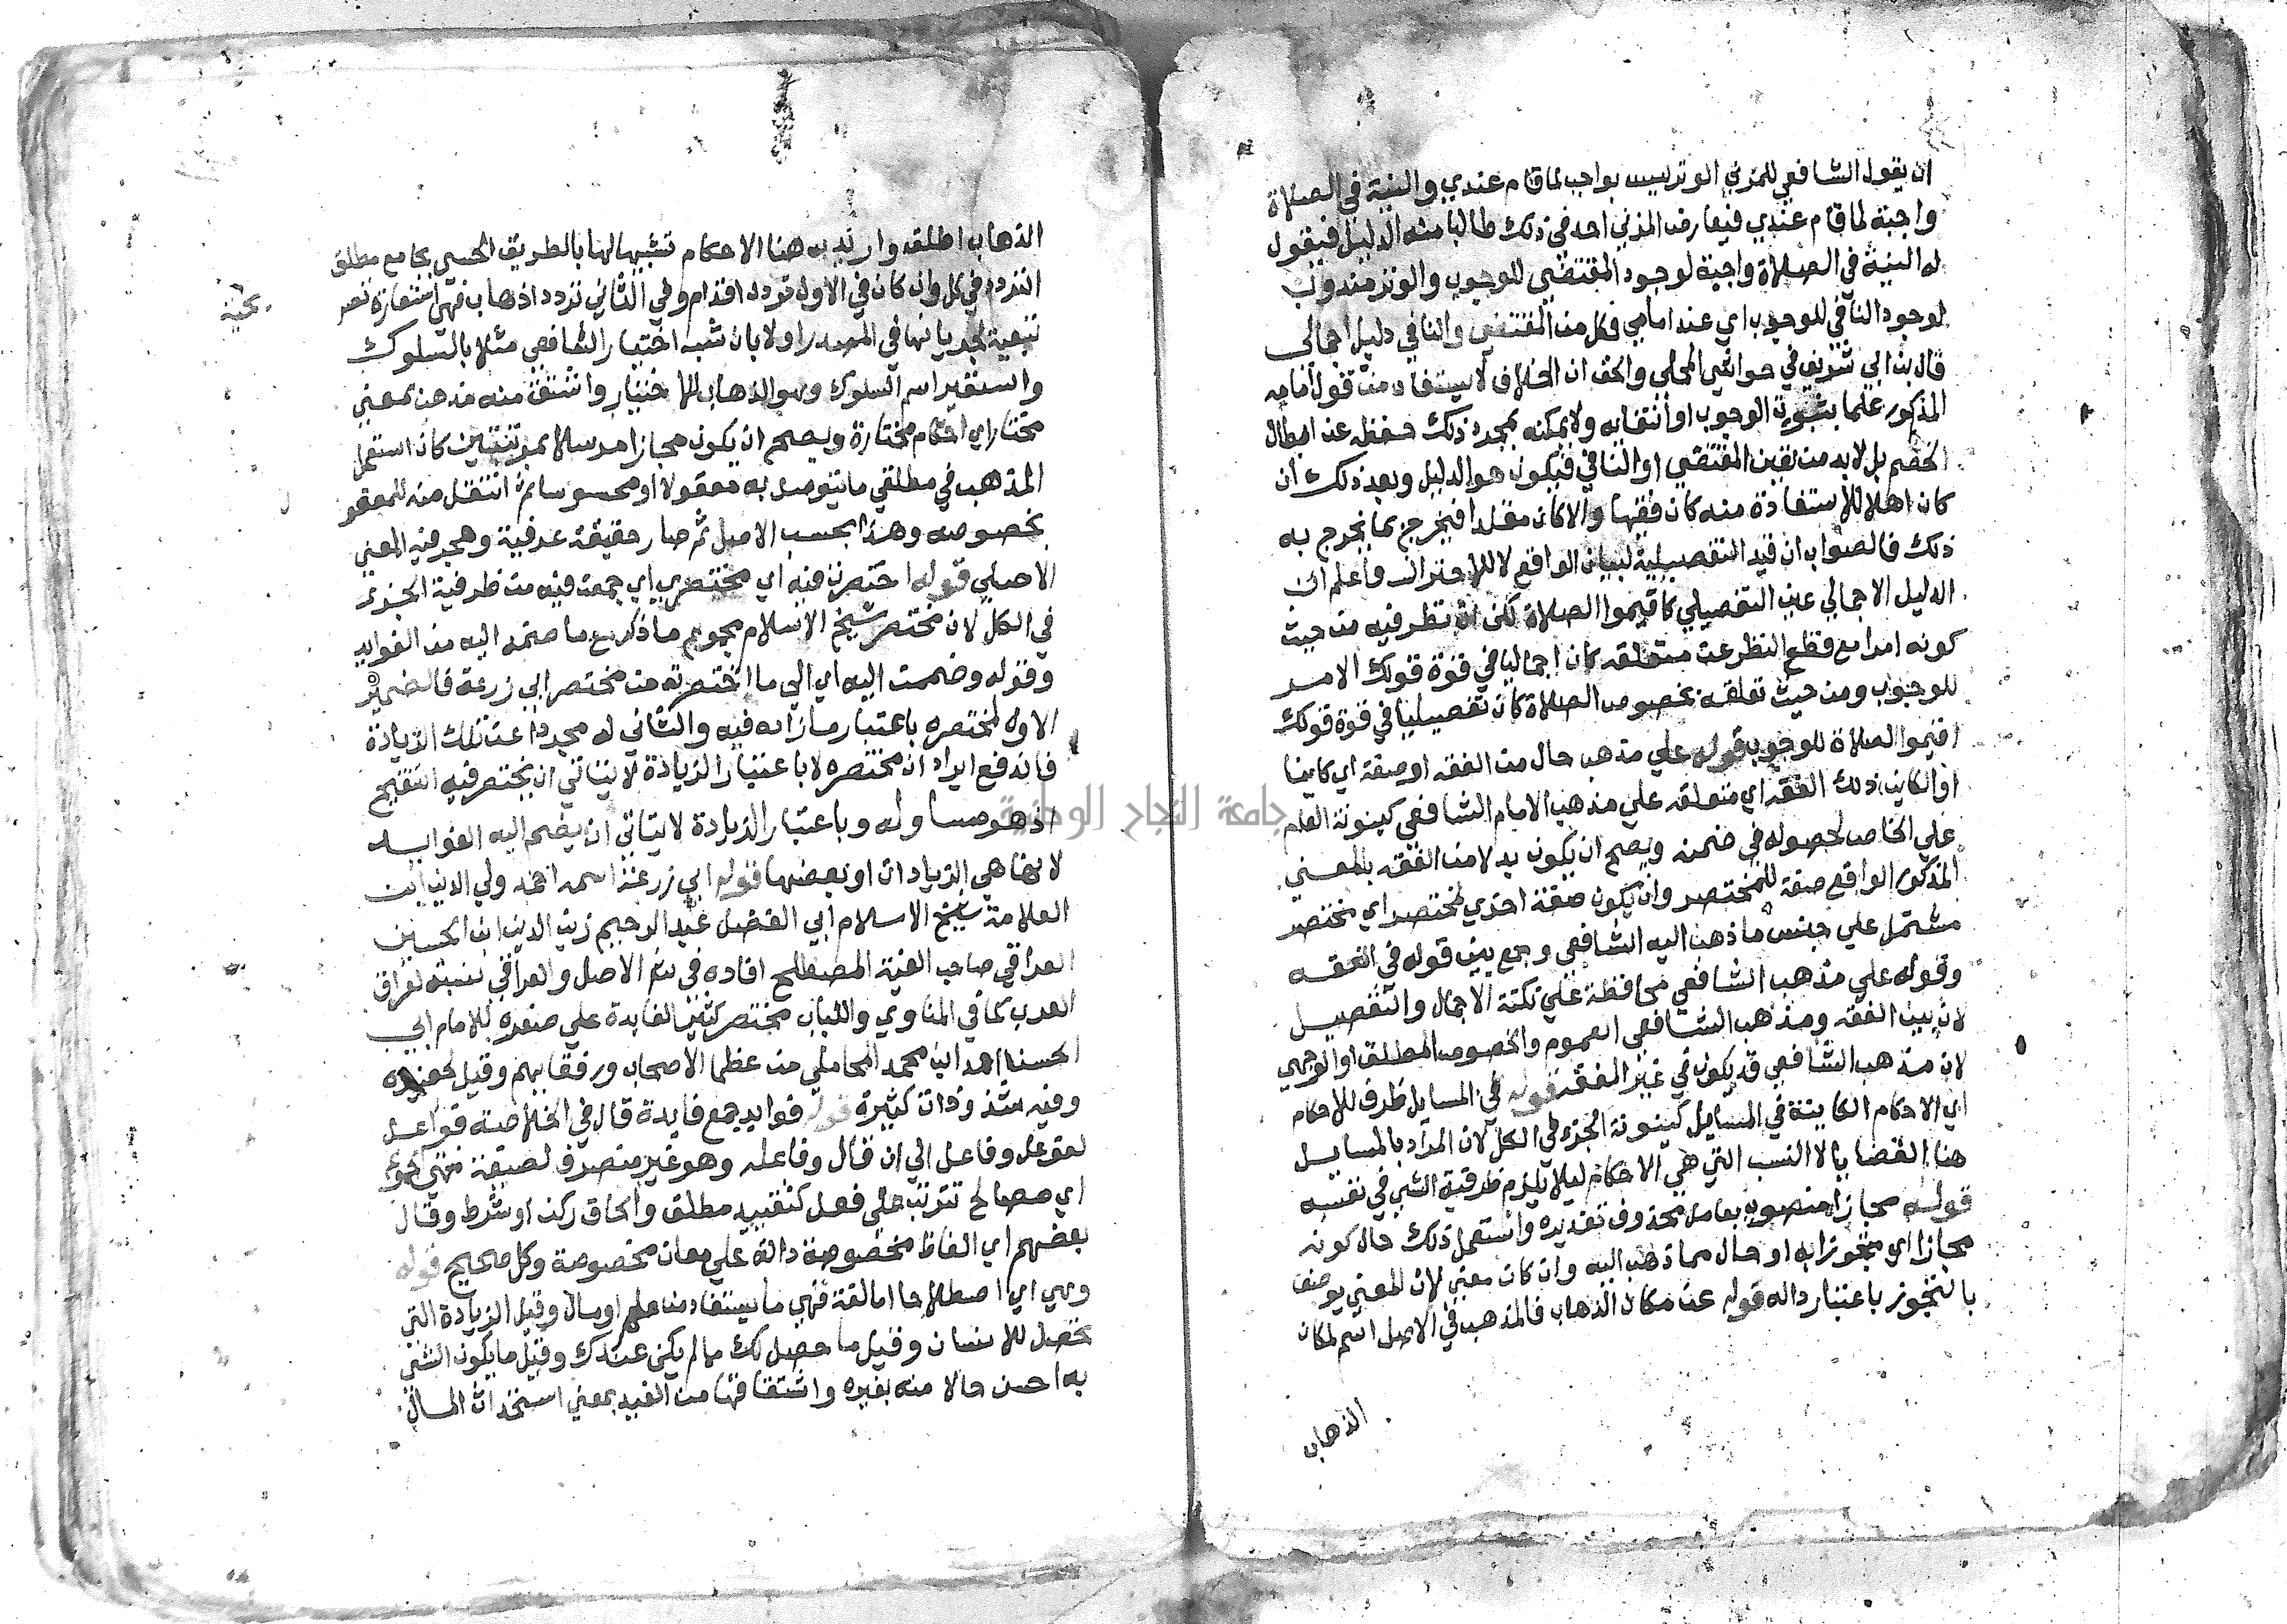 ان يقول الشافعي للمزني الوتر ليس بواجب لما قام عندي والنية في الصلاة
واجبة لما قام عندي فيعارض المزني احد في ذلك طالبا منه الدليل فيقول
له النية في الصلاة واجبة لوجود المقتضى للوجوب والوتر مندوب
لوجود النافي للوجوب اي عند امامي فكل من المقتضى والنافي دليل اجمالي
قال بن ابي شريف في حواشي المحلي والحق ان الخلاف لا يستفاد من قول امامه
المذكور علما بثبوت الوجوب او انتفائه ولا يمكنه بمجرد ذلك حفظه عن ابطال
الخصم بل لا بد من تعين المقتضي او النافي فيكون هو الدليل وبعد ذلك ان
كان اهلا للاستفادة منه كان فقيها والا كان مقلدا فيخرج بما يخرج به
ذلك فالصواب ان قيد التفصيلية لبيان الواقع لا للاحتراز واعلم ان
الدليل الاجمالي عين التفصيلي كاقيموا الصلاة لكن ان نظر فيه من حيث
كونه امرا مع قطع النظر عن متعلقه كان اجماليا في قوة قولك الامر
للوجوب ومن حيث تعلقه بخصوص الصلاة كان تفصيليا في قوة قولك
اقيموا الصلاة للوجوب قوله علي مذهب حال من الفقه او صفة اي كاينا
او الكاين ذلك الفقه اي متعلقه علي مذهب الامام الشافعي كينونة العام
علي الخاص لحصوله في ضمنه ويصح ان يكون بدلا من الفقه بالمعني
المذكور الواقع صفة للمختصر وان يكون صفة اخري لمختصر اي مختصر
مشتمل علي جنس ما ذهب اليه الشافعي وجمع بين قوله في الفقه
وقوله علي مذهب الشافعي محافظة علي نكتة الاجمال والتفصيل
لان بين الفقه ومذهب الشافعي العموم والخصوص المطلق او الوجهي
لان مذهب الشافعي قد يكون في غير الفقه قوله في المسايل ظرف للاحكام
اي الاحكام الكاينة في المسايل كينونة الجزء في الكل لان المراد بالمسايل
هنا القضايا لا النسب التي هي الاحكام ليلا يلزم ظرفية الشي في نفسه
قوله مجازا منصوب بعامل محذوف تقديره واستعمل ذلك حال كونه
مجازا اي متجوزا به او حال مما ذهب اليه وان كان معني لان المعني يوصف
بالتجوز باعتبار داله قوله عن مكان الذهاب فالمذهب في الاصل اسم لمكان
الذهاب
الذهاب اطلق واريد به هنا الاحكام تشبيها لها بالطريق الحسي بجامع مطلق
التردد في كل وان كان في الاول تردد اقدام وفي الثاني تردد اذهاب فهي استعارة
تبعية لجريانها في المصدر اولا بان شبه اختيار الشافعي مثلا بالسلوك
واستعير اسم السلوك وهو الذهاب للاختيار واشتق منه مذهب بمعني
مختار اي احكام مختارة ويصح ان يكون مجازا مرسلا بمرتبتين كان استعمل
المذهب في مطلق ما يتوصل به معقولا او محسوسا ثم انتقل منه للمعقول
بخصوصه وهذا بحسب الاصل ثم صار حقيقة عرفية وهجر فيه المعني
الاصلي قوله اختصرت فيه اي مختصري اي جمعت فيه من ظرفية الجزء
في الكل لان مختصر شيخ الاسلام مجموع ما ذكر مع ما ضمه اليه من الفوايد
وقوله وضممت اليه اي الي ما اختصرته من مختصر ابي زرعة فالضمير
الاول لمختصره باعتبار ما زاده فيه والثاني له مجردا عن تلك الزيادة
فاندفع ايراد ان مختصره لا باعتبار الزيادة لا يتاتي ان يختصر فيه التنقيح
اذ هو مساو له وباعتبار الزيادة لا يتاتي ان يضم اليه الفوايد
لانها هي الزيادات او بعضها قوله ابي زرعة اسمه احمد ولي الدين بن
العلامة شيخ الاسلام ابي الفضل عبد الرحيم زين الدين ابن الحسين
العراقي صاحب الفية المصطلح افاده في شر الاصل والعراقي نسبة لعراق
العرب كما في المناوي واللباب مختصر كثير الفايدة علي صغره للامام ابي
الحسن احمد ابن محمد المحاملي من عظما الاصحاب ورفقايهم وقيل لحفيده
وفيه شذوذات كثيرة قوله فوايد جمع فايدة قال في الخلاصة فواعل
لفوعل وفاعل الي ان قال وفاعله وهو غير منصرف لصيغة منتهي الجموع
اي مصالح تترتب علي فعل كتقييد مطلق والحاق ركن او شرط وقال
بعضهم اي الفاظ مخصوصة دالة علي معان مخصوصة وكل صحيح قوله
وهي اي اصطلاحا اما لغة فهي ما يستفاد من علم او مال وقيل الزيادة التي
تحصل للانسان وقيل ما حصل لك مما لم يكن عندك وقيل ما يكون الشي
به احسن حالا منه بغيره واشتقاقها من الفيد بمعني استحداث المال
جامعة النجاح الوطنية